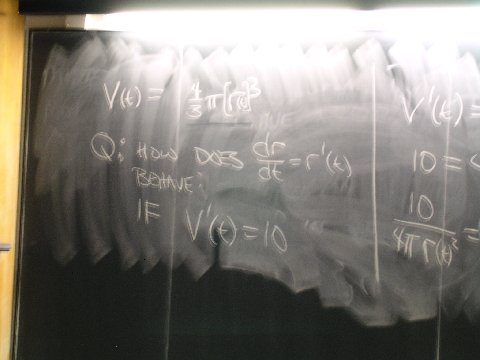 V(t) = 4/3 π[r(t)]³
Q: HOW DOES dr/dt = r'(t)
BEHAVE?
IF V'(t) = 10
V'(t) =
10 =
10/4πr(t)² =